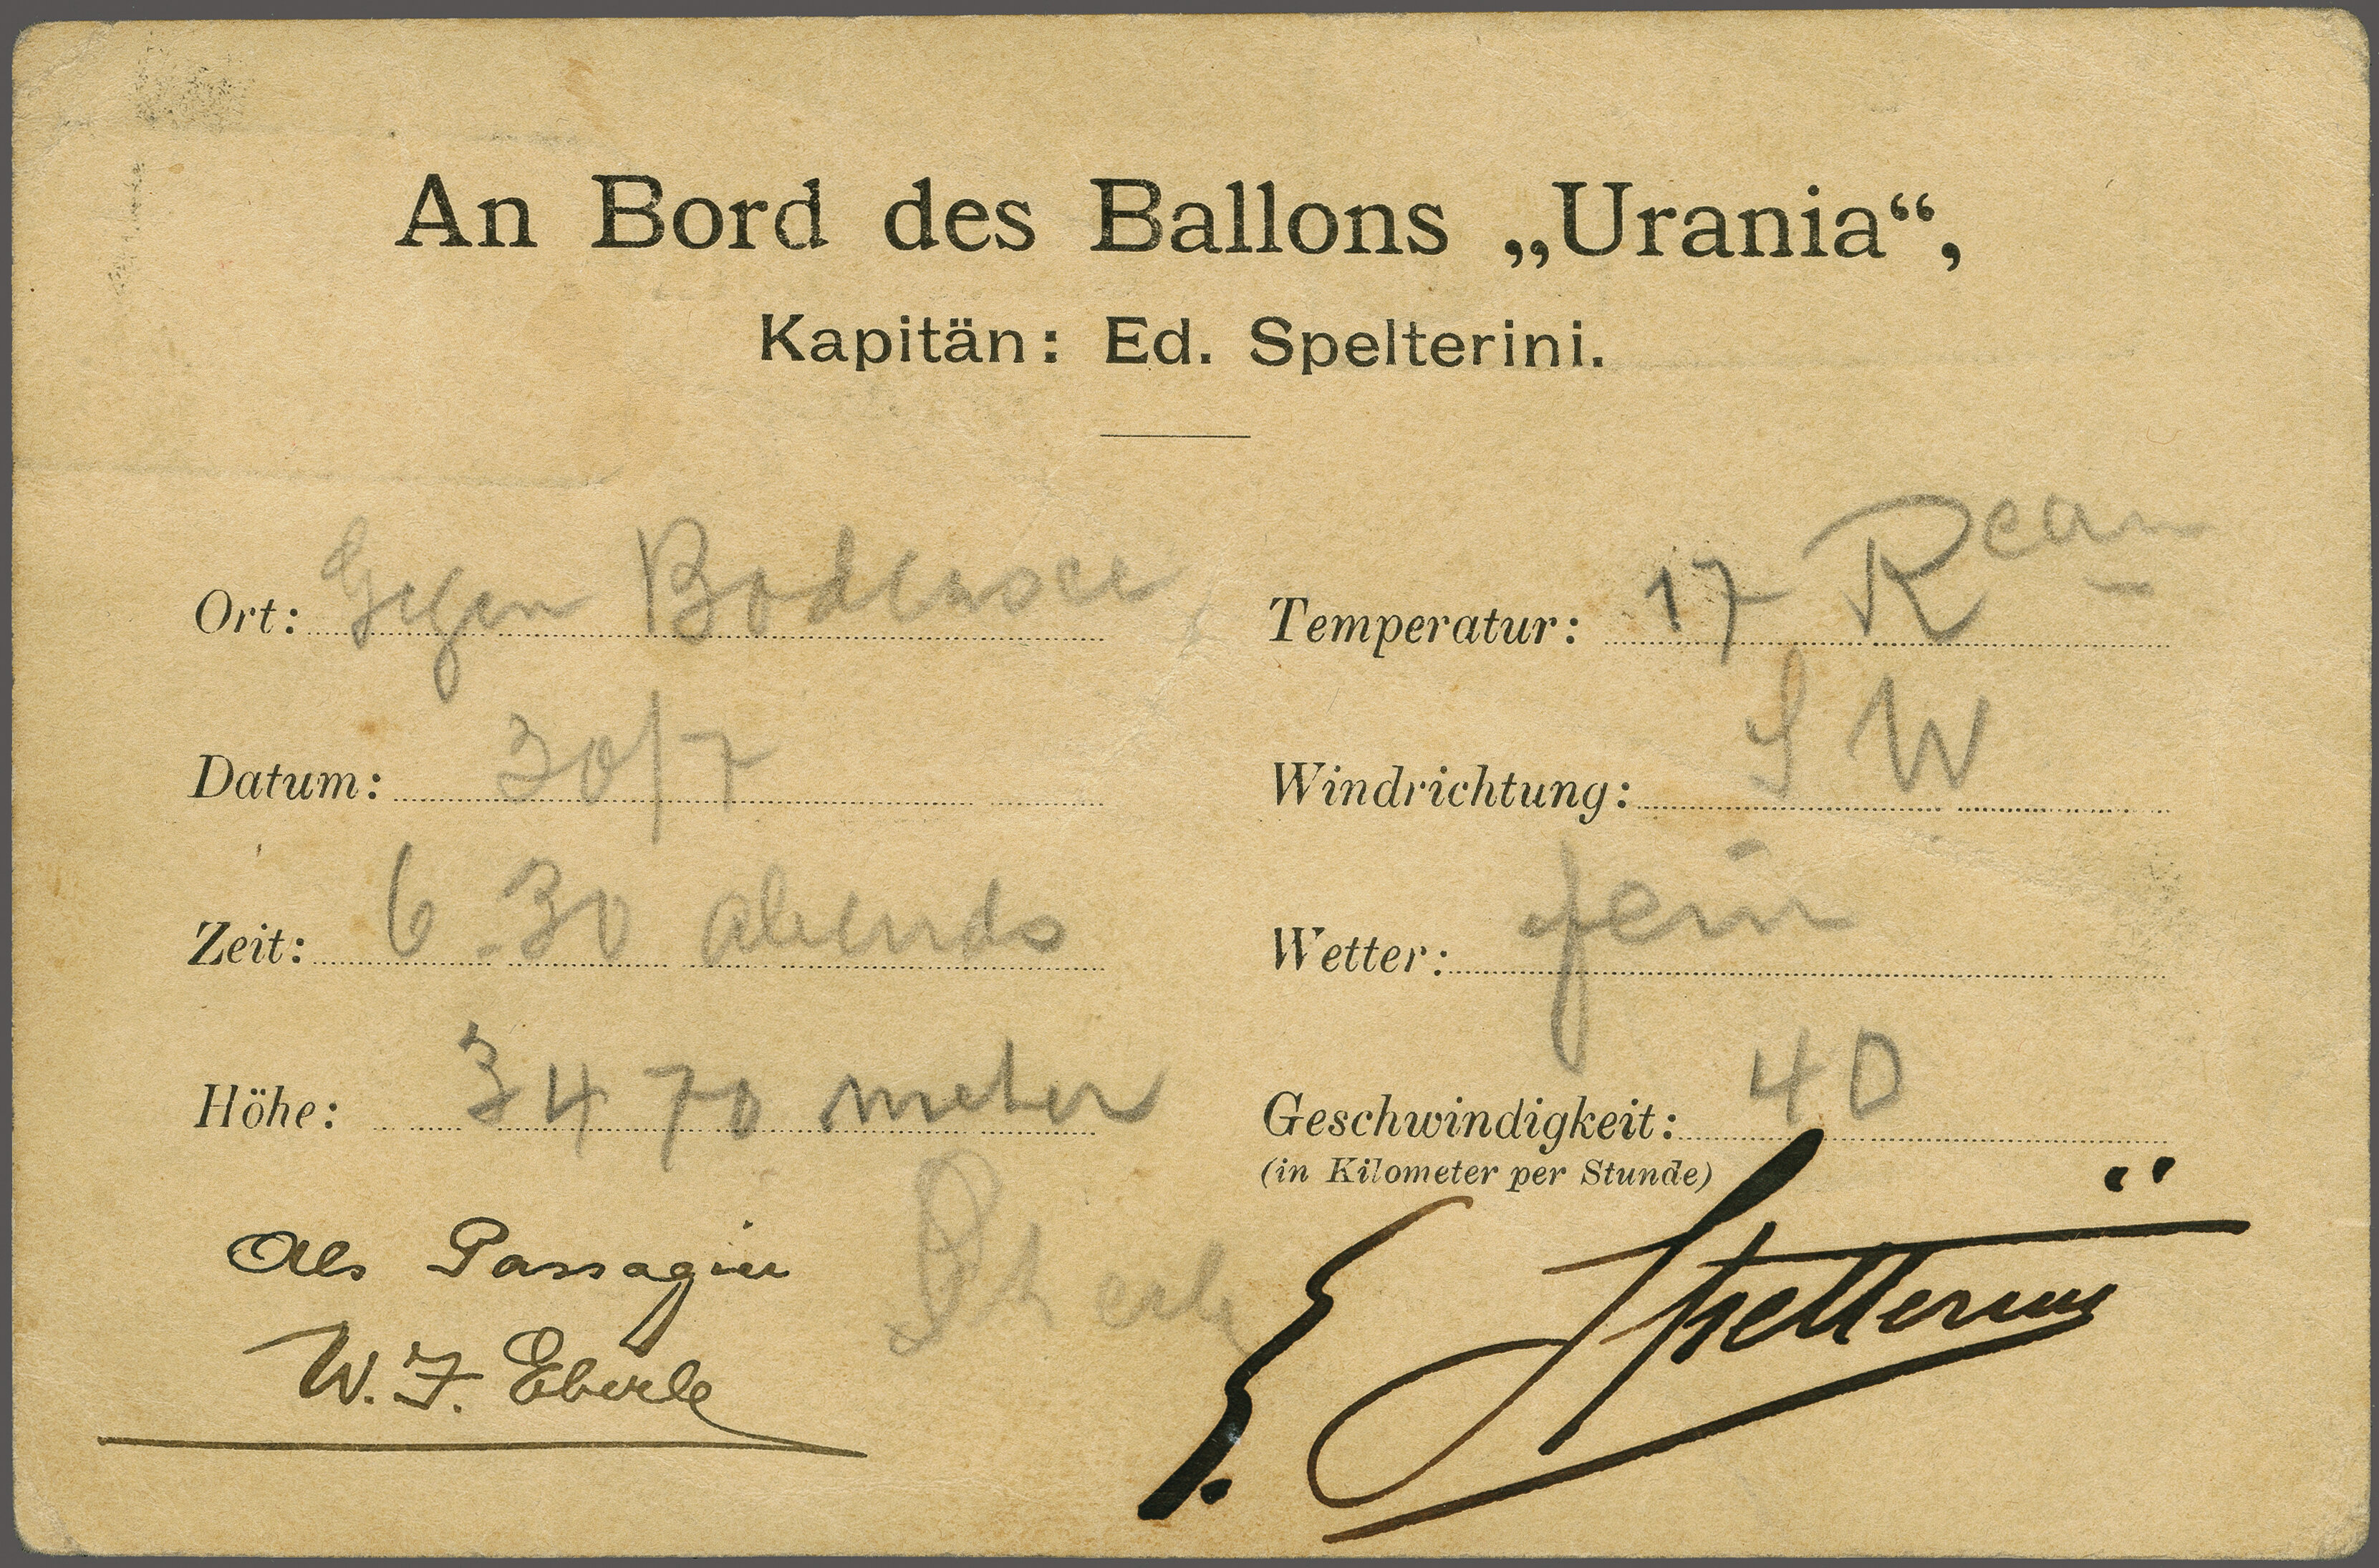 An Bord des Ballons „Urania“,
Kapitän: Ed. Spelterini.
Ort: Gegen Bodensee
Temperatur: 17 Reau
Datum: 30/7
Windrichtung: S W
Zeit: 6.30 abends
Wetter: fein
Höhe: 3470 meter
Geschwindigkeit: 40
(in Kilometer per Stunde)
Als Passagier
W. F. Eberle
E. Spelterini